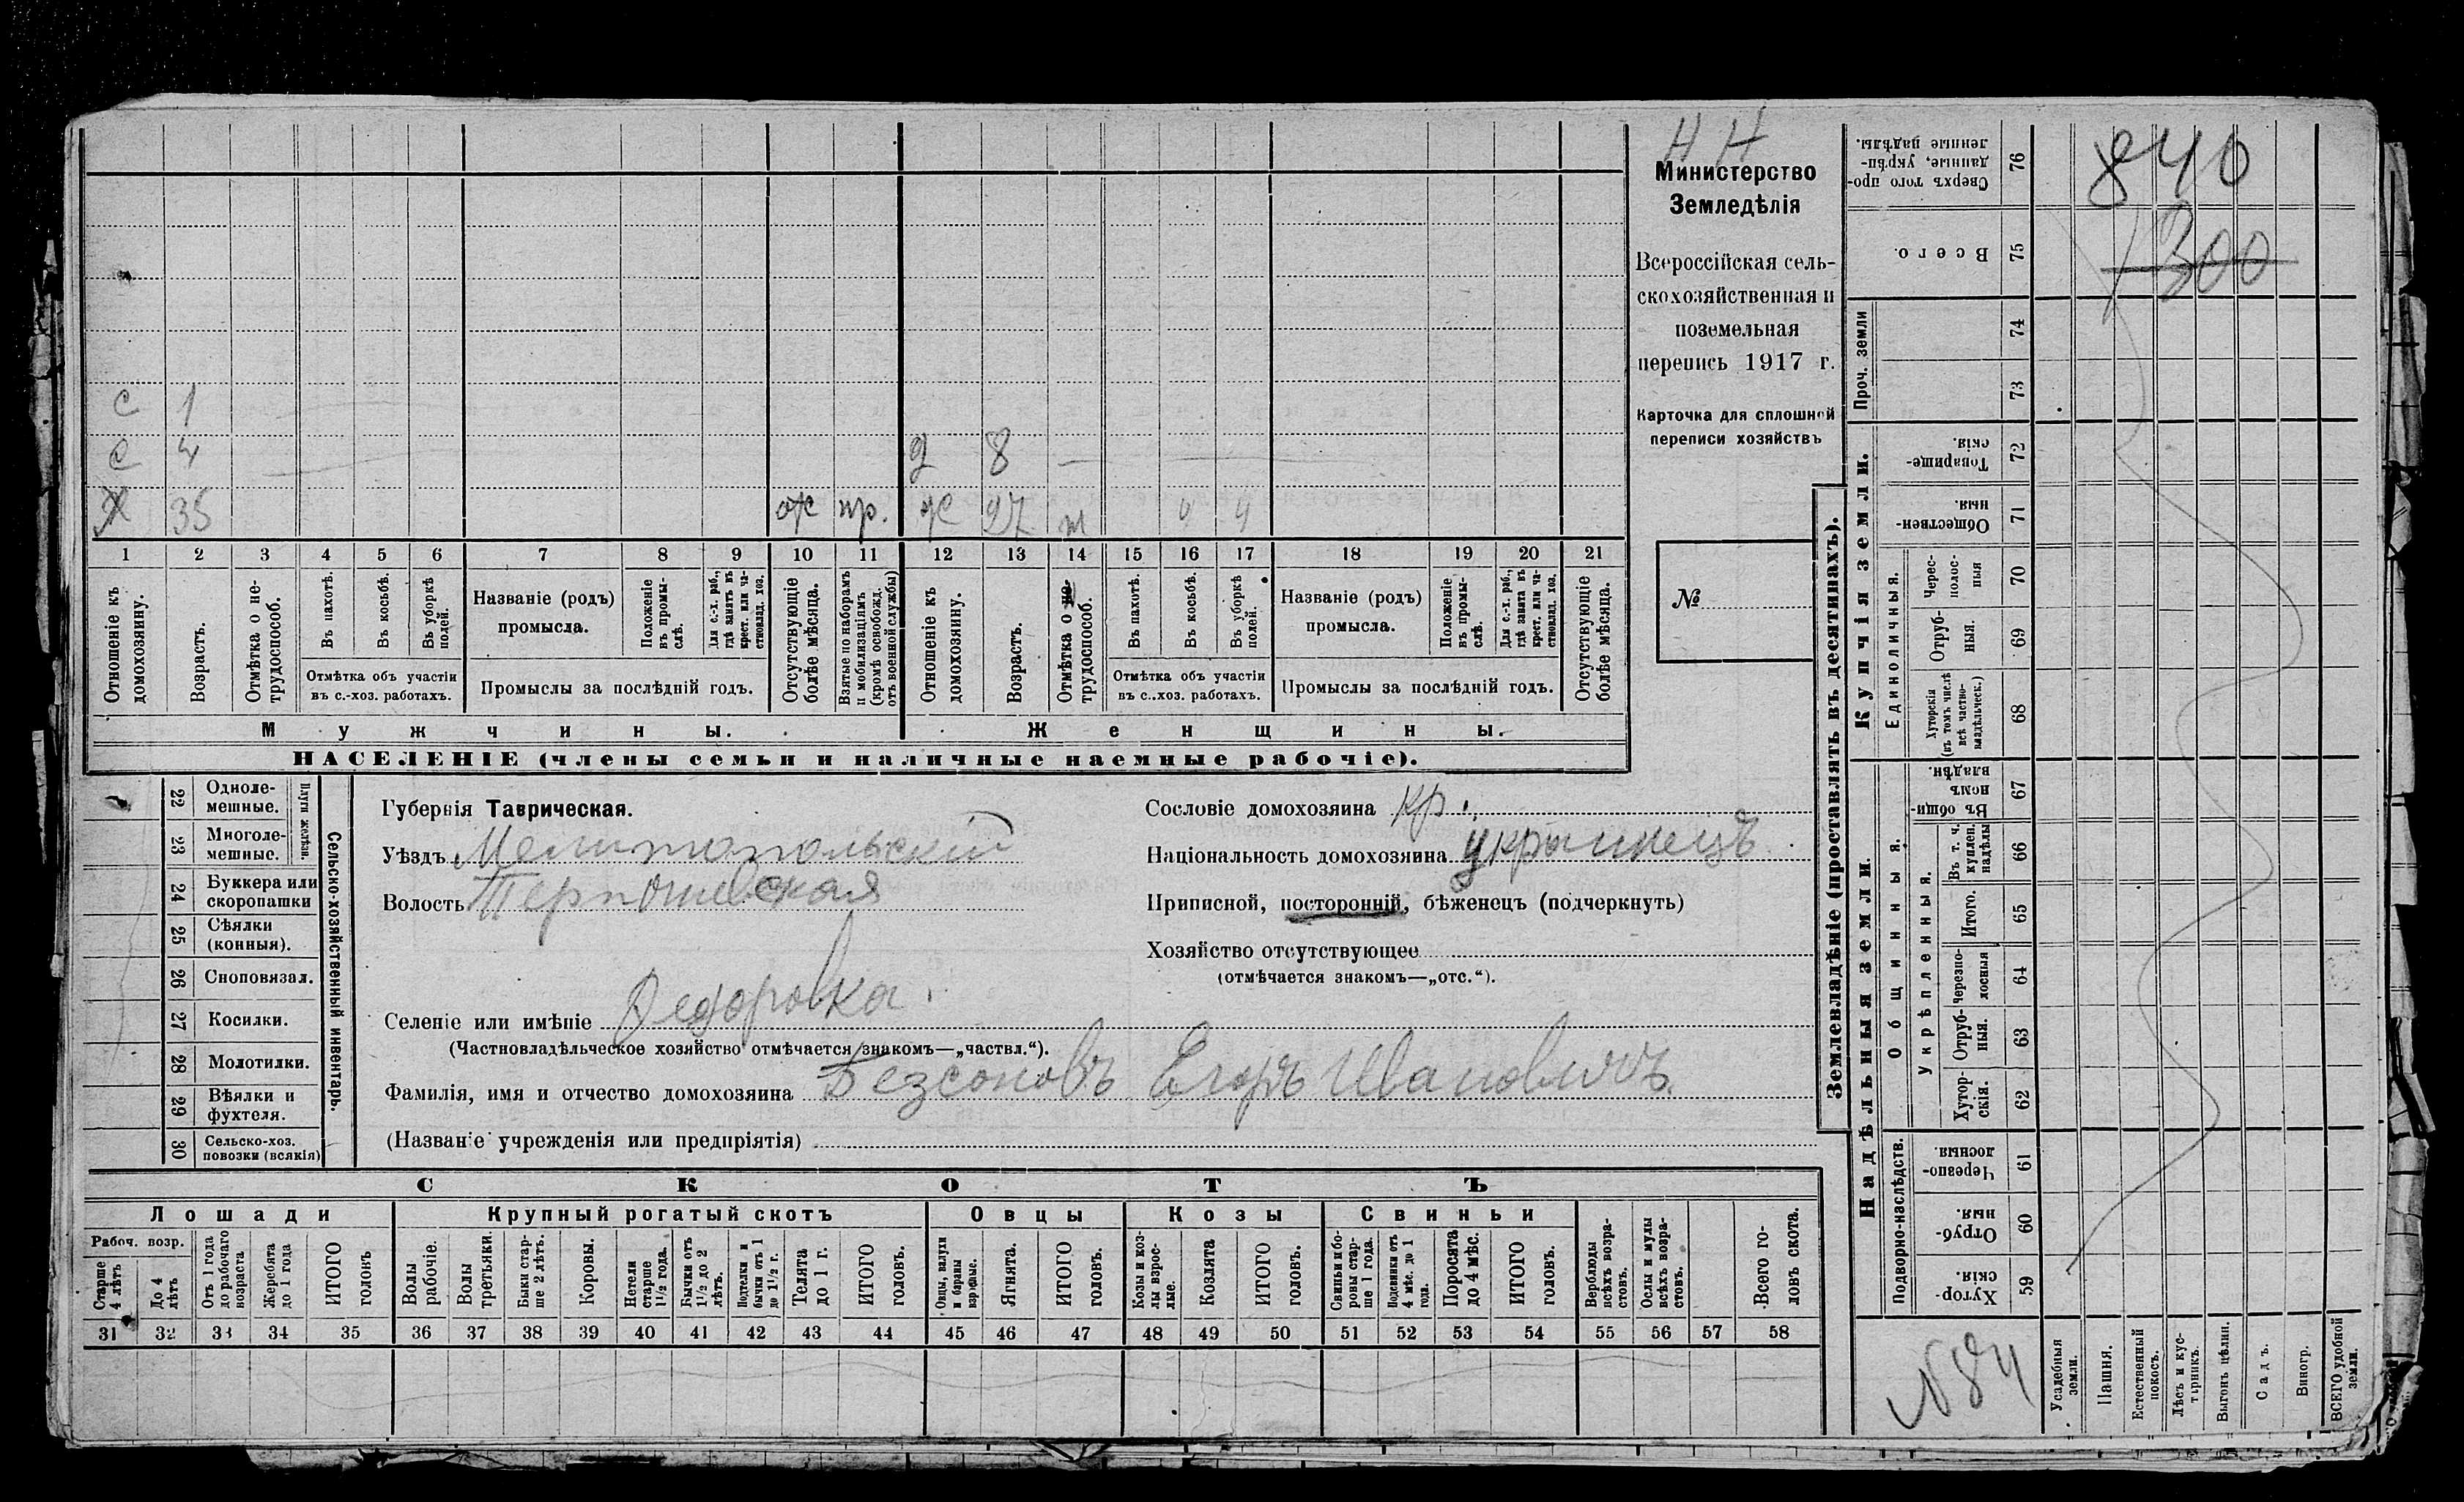 Н Н
Министерство
Земледѣлія
Всероссійская сель-
скохозяйственная и
поземельная
перепись 1917 г.
Карточка для сплошной
переписи хозяйствъ
№
с 1
с 4
д 8 —
Х 35 отс пр. ж 27 ч ч
1 2 3 4 5 6 7 8 9 10 11 12 13 14 15 16 17 18 19 20 21
Отношеніе къ домохозяину.
Возрастъ.
Отмѣтка о не-трудоспособ.
Въ пахотѣ.
Въ косьбѣ.
Въ уборкѣ полей.
Отмѣтка объ участіи
въ с.-хоз. работахъ.
Названіе (родъ)
промысла.
Положеніе въ промы-слѣ.
Для с.-х. раб., гдѣ занятъ въ крест. или ча-стновлад. хоз.
Промыслы за послѣдній годъ.
Отсутствующіе болѣе мѣсяца.
Взятые по наборамъ и мобилизаціямъ (кромѣ освобожд. отъ военной службы)
Отношеніе къ домохозяину.
Возрастъ.
Отмѣтка о не-трудоспособ.
Въ пахотѣ.
Въ косьбѣ.
Въ уборкѣ полей.
Отмѣтка объ участіи
въ с.-хоз. работахъ.
Названіе (родъ)
промысла.
Положеніе въ промы-слѣ.
Для с.-х. раб., гдѣ занята въ крест. или ча-стновлад. хоз.
Промыслы за послѣдній годъ.
Отсутствующіе болѣе мѣсяца.
Мужчины.
Женщины.
НАСЕЛЕНІЕ (члены семьи и наличные наемные рабочіе).
22 Одноле-мешные.
23 Многоле-мешные.
Плуги желѣзн.
24 Буккера или скоропашки
25 Сѣялки (конныя).
26 Сноповязал.
27 Косилки.
28 Молотилки.
29 Вѣялки и фухтеля.
30 Сельско-хоз. повозки (всякія)
Сельско-хозяйственный инвентарь.
Губернія Таврическая.
Уѣздъ Мелитопольскій
Волость Терпѣніевская
Селеніе или имѣніе Федоровка.
(Частновладѣльческое хозяйство отмѣчается знакомъ—„частвл.“).
Фамилія, имя и отчество домохозяина Безсоновъ Егоръ Ивановичъ.
(Названіе учрежденія или предпріятія)
Сословіе домохозяина кр.
Національность домохозяина украинецъ
Приписной, посторонній, бѣженецъ (подчеркнуть)
Хозяйство отсутствующее
(отмѣчается знакомъ—„отс.“).
СКОТЪ
Лошади
Крупный рогатый скотъ
Овцы
Козы
Свиньи
Рабоч. возр.
Старше 4 лѣтъ
До 4 лѣтъ
Отъ 1 года до рабочаго возраста
Жеребята до 1 года
ИТОГО головъ
Волы рабочіе.
Волы третьяки.
Быки стар-ше 2 лѣтъ.
Коровы.
Нетели старше 1½ года.
Бычки отъ 1½ до 2 лѣтъ.
Подтелки и бычки отъ 1 до 1½ г.
Телята до 1 г.
ИТОГО головъ.
Овцы, валухи и бараны взрослые.
Ягнята.
ИТОГО головъ.
Козы и коз-лы взрос-лые.
Козлята
ИТОГО головъ.
Свиньи и бо-ровы стар-ше 1 года.
Подсвинки отъ 4 мѣс. до 1 года.
Поросята до 4 мѣс.
ИТОГО головъ.
Верблюды всѣхъ возра-стовъ.
Ослы и мулы всѣхъ возра-стовъ.
Всего го-ловъ скота.
31 32 33 34 35 36 37 38 39 40 41 42 43 44 45 46 47 48 49 50 51 52 53 54 55 56 57 58
Землевладѣніе (проставлять въ десятинахъ).
Сверхъ того про-данные, укрѣп-ленные надѣлы. 76
840
Всего. 75
1300
Проч. земли
74
73
Купчія земли.
Товарище-скія. 72
Обществен-ныя 71
Единоличныя.
Черес-полос-ныя 70
Отруб-ныя. 69
Хуторскія (въ томъ числѣ всѣ частно-владѣльческ.) 68
Надѣльныя земли.
Общинныя.
Въ общин-номъ владѣн. 67
Укрѣпленныя.
Въ т. ч. куплен. надѣлы 66
Итого. 65
Черезпо-лосныя 64
Отруб-ныя. 63
Хутор-скія. 62
Подворно-наслѣдств.
Черезпо-лосныя. 61
Отруб-ныя. 60
Хутор-скія 59
№ 84
Усадебныя земли.
Пашня.
Естественный покосъ.
Лѣсъ и кус-тарникъ.
Выгонъ цѣлин.
Садъ.
Виногр.
ВСЕГО удобной земли.